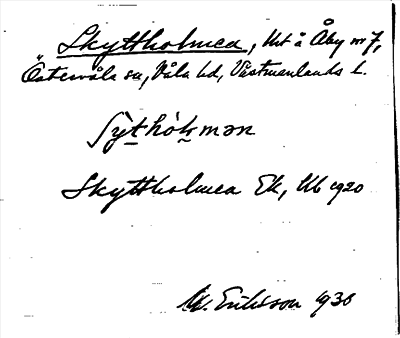 Skyttholmea, Urt å Åby nr 7,
Östervåla sn, Våla hd, Västmanlands l.
Skyttholmea Ek, Ub 1920
W. Eriksson 1936